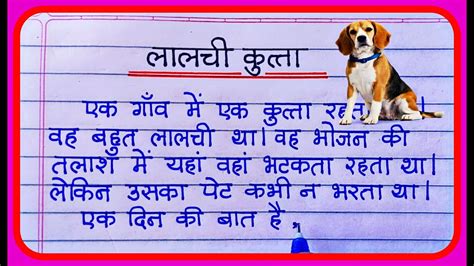 लालची कुत्ता
एक गाँव में एक कुत्ता रहता ।
वह बहुत लालची था। वह भोजन की
तलाश में यहां वहां भटकता रहता था।
लेकिन उसका पेट कभी न भरता था।
एक दिन की बात है